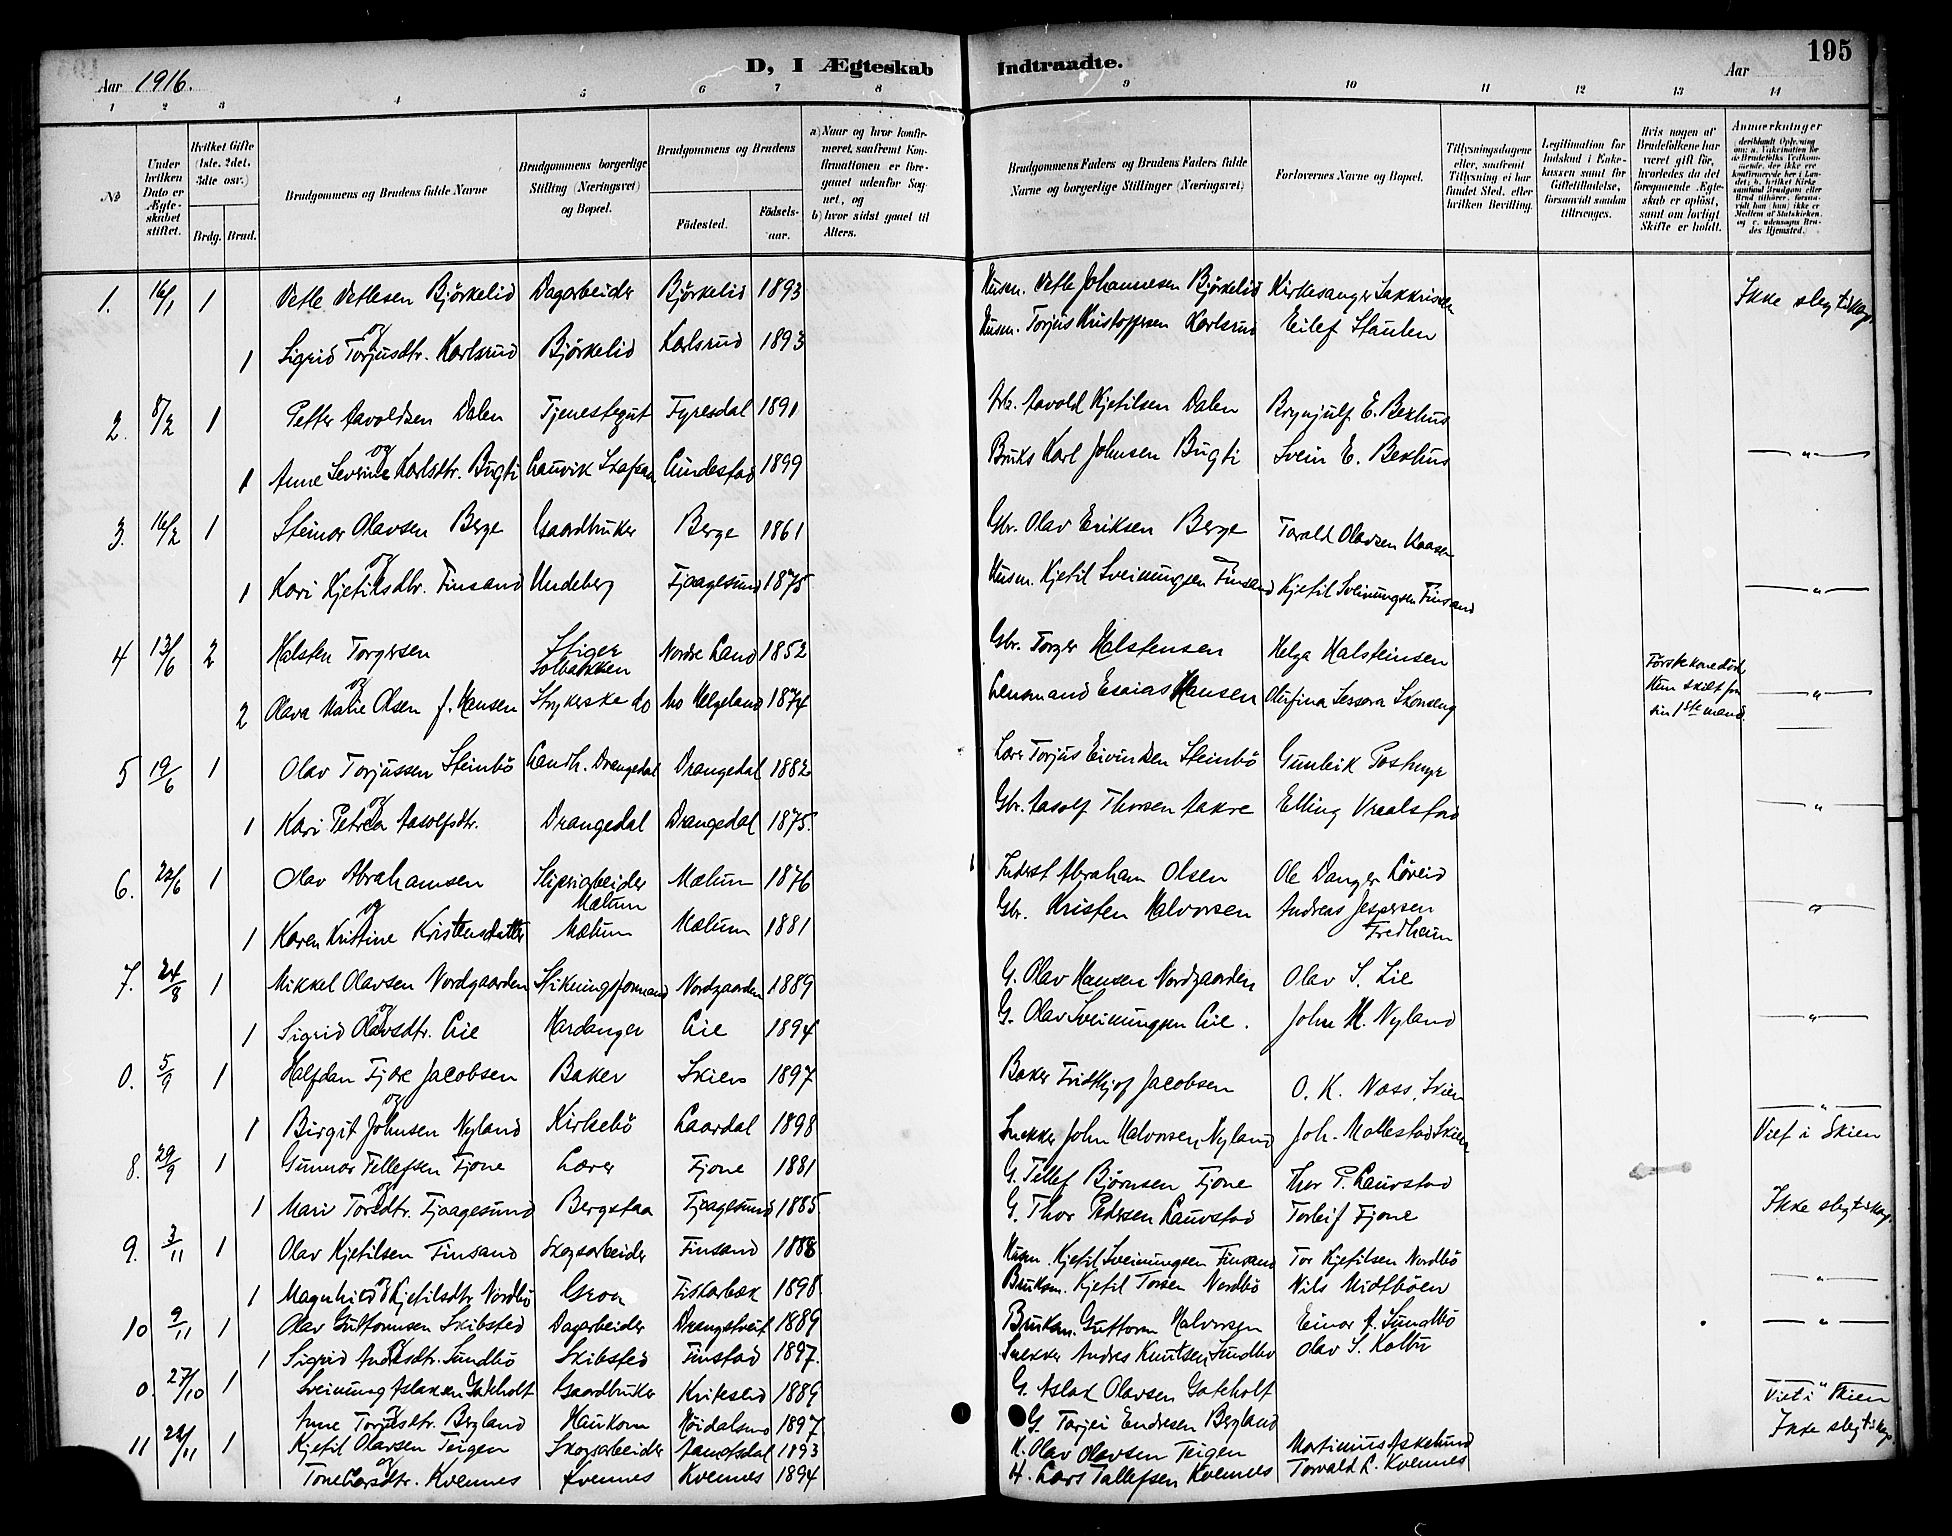 195
Aar 1916.
D, I Ægteskab Indtraadte.
Aar
1 2 3 4 5 6 7 8 9 10 11 12 13 14
No
Under hvilken Dato er Ægteskabet stiftet.
Hvilket Gifte (1ste, 2det, 3die osv.)
Brdg. Brud.
Brudgommens og Brudens fulde Navne
Brudgommens borgerlige Stilling (Næringsvei) og Bopæl.
Brudgommens og Brudens
Födested.
Födselsaar.
a) Naar og hvor konfirmeret, saafremt Konfirmationen er foregaaet udenfor Sognet, og
b) hvor sidst gaaet til Alters.
Brudgommens Faders og Brudens Faders fulde Navne og borgerlige Stillinger (Næringsvei)
Forlovernes Navne og Bopæl.
Tillysningsdagene eller, saafremt Tillysning ei har fundet Sted, efter hvilken Bevilling.
Legitimation for Indskud i Enkekassen samt for Giftetilladelse, forsaavidt saadan tiltrænges.
Hvis nogen af Brudefolkene har været gift för, hvorledes da det foregaaende Ægteskab er oplöst, samt om lovligt Skifte er holdt.
Anmærkninger
1. 16/1 1 Vetle Vetlesen Bjørkelid Dagarbeider Bjørkelid 1893 Husm. Vetle Johannesen Bjørkelid Kirkesanger Sakkrisen Ikke slegtskap.
og
1 Sigrid Torjusdtr. Karlsrud Bjørkelid Karlsrud 1893 Husm. Torjus Kristoffersen Karlsrud Eilef Staulen
2. 8/2 1 Petter Aavoldsen Dalen Tjenestegut Fyresdal 1891 Arb. Aavold Kjetilsen Dalen Brynjulf E. Bekhus
og
1 Anne Severine Karlsdtr. Bugti Lauvik Skafsaa Lindestad 1899 Bruks Karl Johnsen Bugti Svein E. Bekhus — " —
3. 16/2 1 Steinar Olavsen Berge Gaardbruker Berge 1861 Gbr. Olav Eriksen Berge Tarald Olavsen Kaasen
og
1 Kari Kjetilsdtr. Finsand Undeberg Fjaagesund 1875 Husm. Kjetil Sveinungsen Finsand Kjetil Sveinungsen Finsand — " —
4 13/6 2 Halsten Torgersen Stiger Solbakken Nordre Land 1852 Gbr. Torger Halstensen Helga Halsteinsen Förste kone död.
og
2 Olava Malie Olsen f. Hansen Strykerske do Mo Helgeland 1874 Lensmand Esaias Hansen Olufina Sessora Skonseng Hun skilt fra sin 1ste mand. — " —
5 19/6 1 Olav Torjussen Steinbö Landh. Drangedal Drangedal 1882 Lærer Torjus Eivindsen Steinbö Gunleik
og
1 Kari Petrea Aasolfsdtr. Drangedal Drangedal 1875. Gbr. Aasolf Thorsen Aakre Elling Vraalstad — " —
6. 22/6 1 Olav Abrahamsen Sliperiarbeider Mælum Mælum 1876 Inderst Abraham Olsen Ole Danger Löveid
og
1 Karen Kristine Kristensdatter Mælum Mælum 1881 Gbr. Kristen Halvorsen Andreas Jespersen Fredheim — " —
7. 24/8 1 Mikkel Olavsen Nordgaarden Stikningsformand Nordgaarden 1889 G. Olav Hansen Nordgaarden Olav S. Lie
og
1 Sigrid Olavsdtr. Lie Hardanger Lie 1894 G. Olav Sveinungsen Lie. John H. Nyland — " —
0. 5/9 1 Halfdan Fjære Jacobsen Baker Skien 1897 Baker Fridthjof Jacobsen O. K. Næss, Skien
og
1 Birgit Johnsen Nyland Kirkebö Laardal 1898 Snekker John Halvorsen Nyland Joh. Mollestad Skien — " — Viet i Skien
8. 29/9 1 Gunnar Tellefsen Fjone Lærer Fjone 1881 G. Tellef Björnsen Fjone Thor P. Lauvstad
og
1 Mari Torsdtr. Fjaagesund Bergstaa Fjaagesund 1885. G. Thor Pedersen Lauvstad Torleif Fjone Ikke slegtskap.
9. 3/11 1 Olav Kjetilsen Finsand Skogsarbeider Finsand 1888 Husm. Kjetil Sveinungsen Finsand Tor Kjetilsen Nordbö
og
1 Magnhild Kjetilsdtr Nordbö Groa Fiskarbæk 1898. Bruksm. Kjetil Torsen Nordbö Nils Midtböen — " —
10 9/11 1 Olav Guttormsen Skibsted Dagarbeider Drangstveit 1889 Bruksm. Guttorm Halvorsen Einar A. Sundbö — " —
og
1 Sigrid Andresdtr. Sundbö Skibsted Finstad 1897. Snekker Andres Knutsen Sundbö Olav S. Kolbu
0. 27/10 1 Sveinung Aslaksen Gøteholt Gaardbruker Kviteseid 1889 G. Aslak Olavsen Gøteholt — " — Viet i Skien
og
Anne Torjeisdtr. Bergland Haukom Höidalsmo 1897 G Torjei Endresen Bergland
11 22/11 1 Kjetil Olavsen Teigen Skogsarbeider Aamotsdal 1893 H. Olav Olavsen Teigen Martinius Askelund Ikke slegtskap.
og
Tone Larsdtr. Kvennes Kvennes Kvennes 1894 H. Lars Tallefsen Kvennes Torvald L. Kvennes